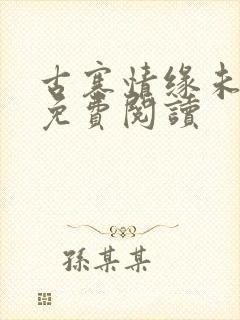 古寨情缘未
免費閱讀
孫某某